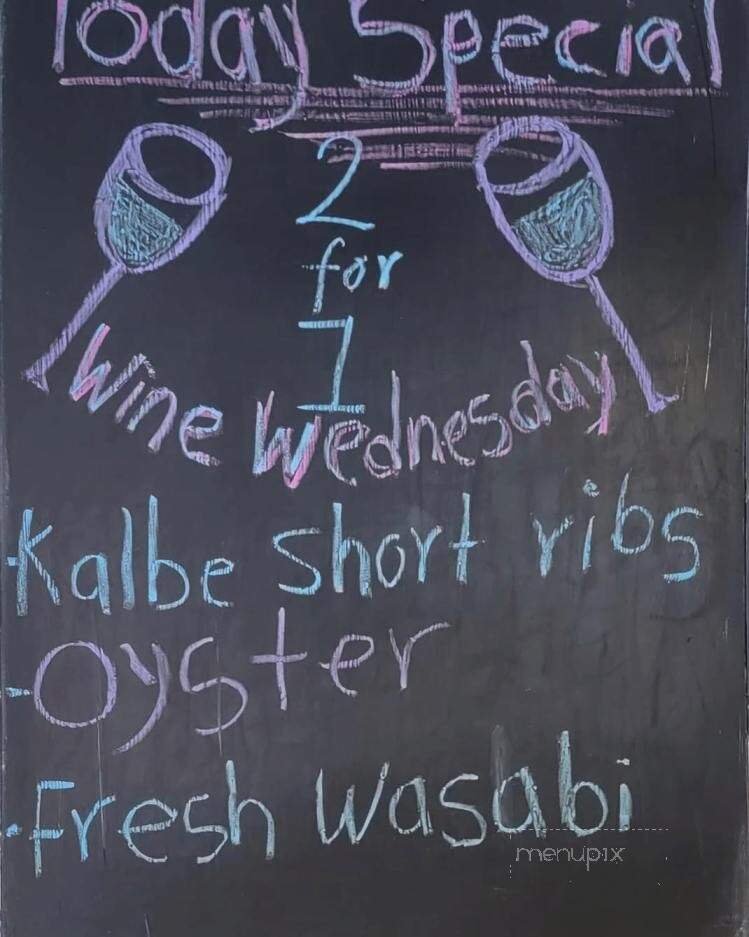 Today Special
2
for
1
Wine Wednesday
-Kalbe Short ribs
-Oyster
-Fresh Wasabi
menupix